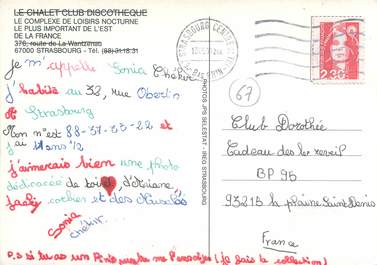 LE CHALET CLUB DISCOTHEQUE
LE COMPLEXE DE LOISIRS NOCTURNE
LE PLUS IMPORTANT DE L'EST
DE LA FRANCE
376, route de La Wantzenau
67000 STRASBOURG - Tél. (88).31.18.31
Je m'appelle Sonia
j'habite au 32, rue Oberlin
à Strasbourg
Mon n' est 88-37-33-22 et
j'ai 11 ans 1/2
j'aimerais bien une photo
dédicacée de d'Ariane,
Jacky et des Musclés
Sonia
P.S si tu as un (je fais la collection)
PHOTOS JPS SELESTAT - IREG STRASBOURG
STRASBOURG CENTRE
BAS RHIN
2,30
67
Club Dorothée
Cadeau des 1er reveil
BP 95
93215 la plaine Saint Denis
France